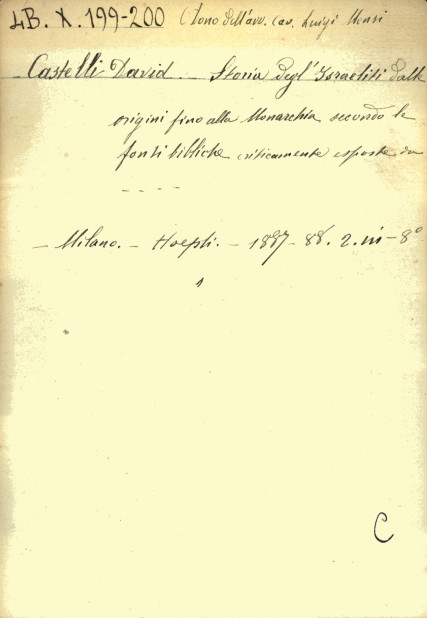 4B. X. 199-200 (Dono dell'avv. cav. Luigi Mensi
Castelli David. - Storia degl'Israeliti dalle
origini fino alla Monarchia secondo le
fonti bibliche criticamente esposte da
- - - -
- Milano. - Hoepli. - 1887-88. 2. in-8°
C